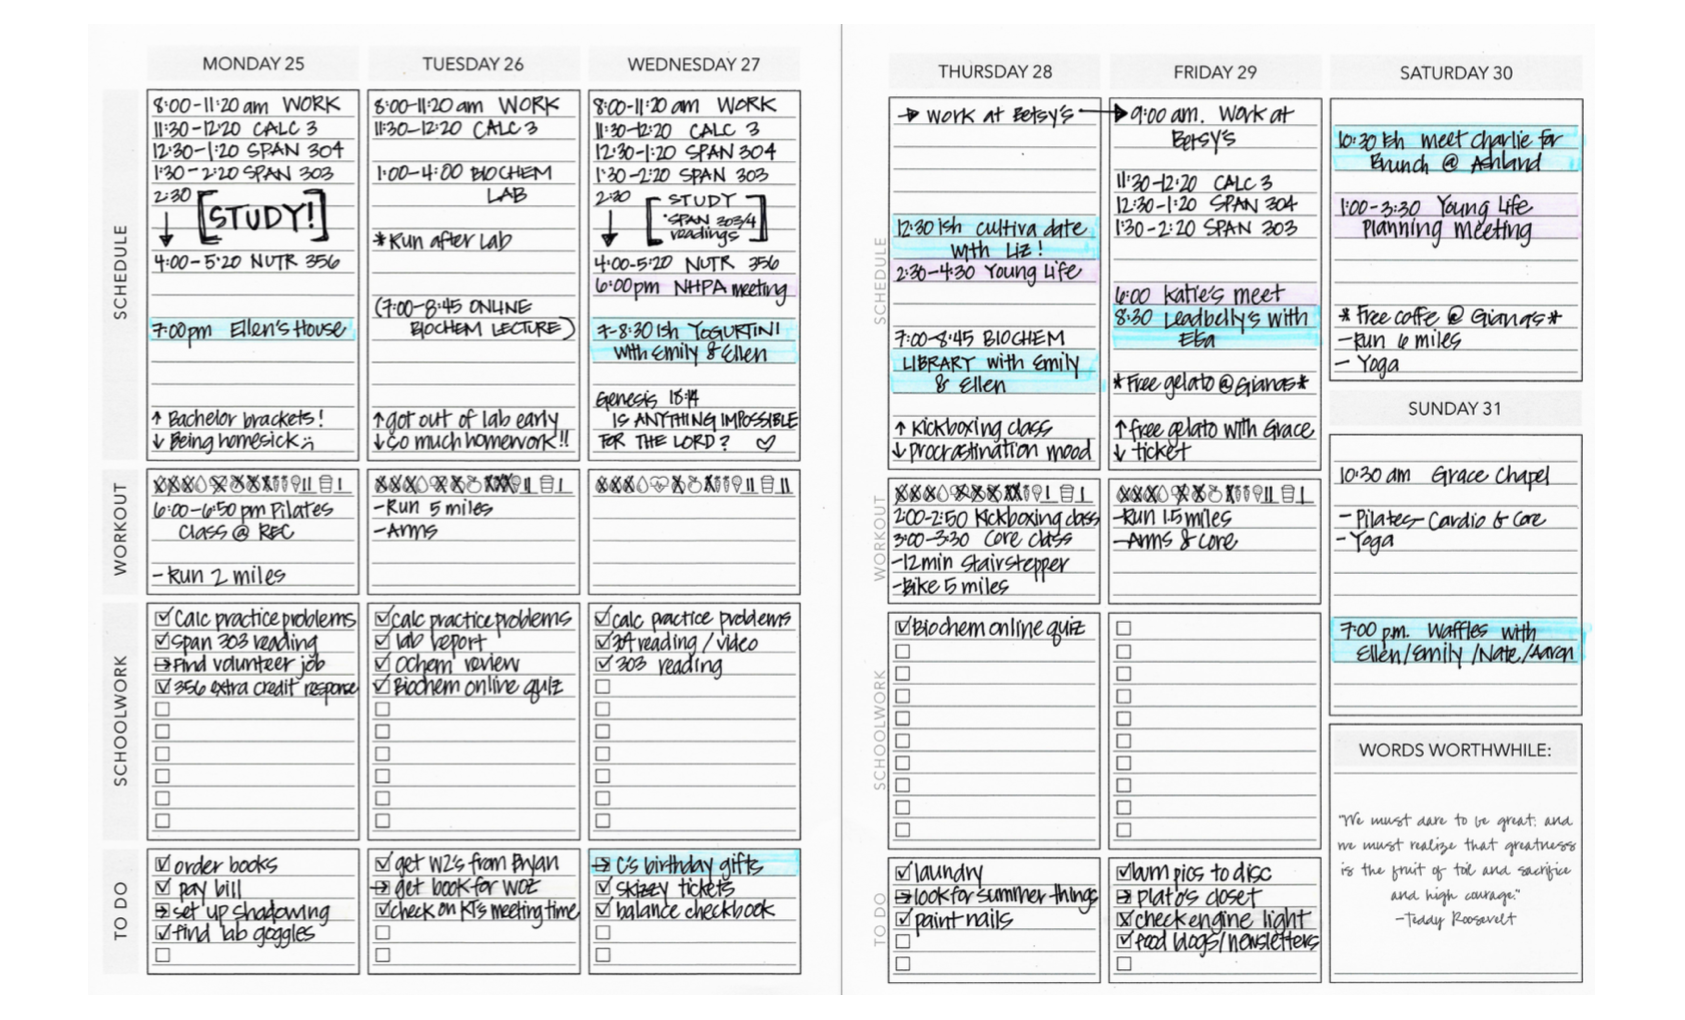 MONDAY 25
8:00-11:20 am WORK
11:30-12:20 CALC 3
12:30-1:20 SPAN 304
1:30-2:20 SPAN 303
2:30
[STUDY!]
4:00-5:20 NUTR 356
7:00pm Ellen's House
↑ Bachelor brackets!
↓ Being homesick
TUESDAY 26
8:00-11:20 am WORK
11:30-12:20 CALC 3
1:00-4:00 BIOCHEM
LAB
*Run after Lab
(7:00-8:45 ONLINE
BIOCHEM LECTURE)
↑got out of lab early
↓so much homework!!
WEDNESDAY 27
8:00-11:20 am WORK
11:30-12:20 CALC 3
12:30-1:20 SPAN 304
1:30-2:20 SPAN 303
2:30
[STUDY
*SPAN 303/4
readings]
4:00-5:20 NUTR 356
6:00pm NHPA meeting
7-8:30ish YOGURTINI
with Emily & Ellen
Genesis 18:14
IS ANYTHING IMPOSSIBLE
FOR THE LORD? ♡
SCHEDULE
WORKOUT
6:00-6:50pm Pilates
Class @ REC
-Run 2 miles
-Run 5 miles
-Arms
SCHOOLWORK
Calc practice problems
Span 303 reading
→Find volunteer job
356 extra credit response
calc practice problems
lab report
Ochem review
Biochem online quiz
calc practice problems
304 reading / video
303 reading
TO DO
order books
pay bill
→set up shadowing
find lab goggles
get W2's from Bryan
→get book for WOZ
check on KT's meeting time
→C's birthday gifts
skizzy tickets
balance checkbook
THURSDAY 28
→ work at Betsy's
12:30ish cultiva date
with Liz!
2:30-4:30 Young Life
7:00-8:45 BIOCHEM
LIBRARY with Emily
& Ellen
↑ Kickboxing class
↓procrastination mood
FRIDAY 29
9:00 am. Work at
Betsy's
11:30-12:20 CALC 3
12:30-1:20 SPAN 304
1:30-2:20 SPAN 303
6:00 Katie's meet
8:30 Leadbelly's with
*Free gelato @Giana's*
↑free gelato with Grace
↓ ticket
SCHEDULE
WORKOUT
2:00-2:50 Kickboxing class
3:00-3:30 Core class
-12min Stairstepper
-Bike 5 miles
-Run 1.5 miles
-Arms & core
SCHOOLWORK
Biochem online quiz
TO DO
laundry
→look for summer things
paint nails
burn pics to disc
→plato's closet
check engine light
food blogs/newsletters
SATURDAY 30
10:30ish meet charlie for
Brunch @ Ashland
1:00-3:30 Young Life
Planning Meeting
*Free coffe @ Giana's*
-Run 6 miles
- Yoga
SUNDAY 31
10:30 am Grace Chapel
- Pilates- Cardio & Core
- Yoga
7:00 p.m. Waffles with
Ellen/Emily/Nate/Aaron
WORDS WORTHWHILE:
"We must dare to be great; and
we must realize that greatness
is the fruit of toil and sacrifice
and high courage."
-Teddy Roosevelt